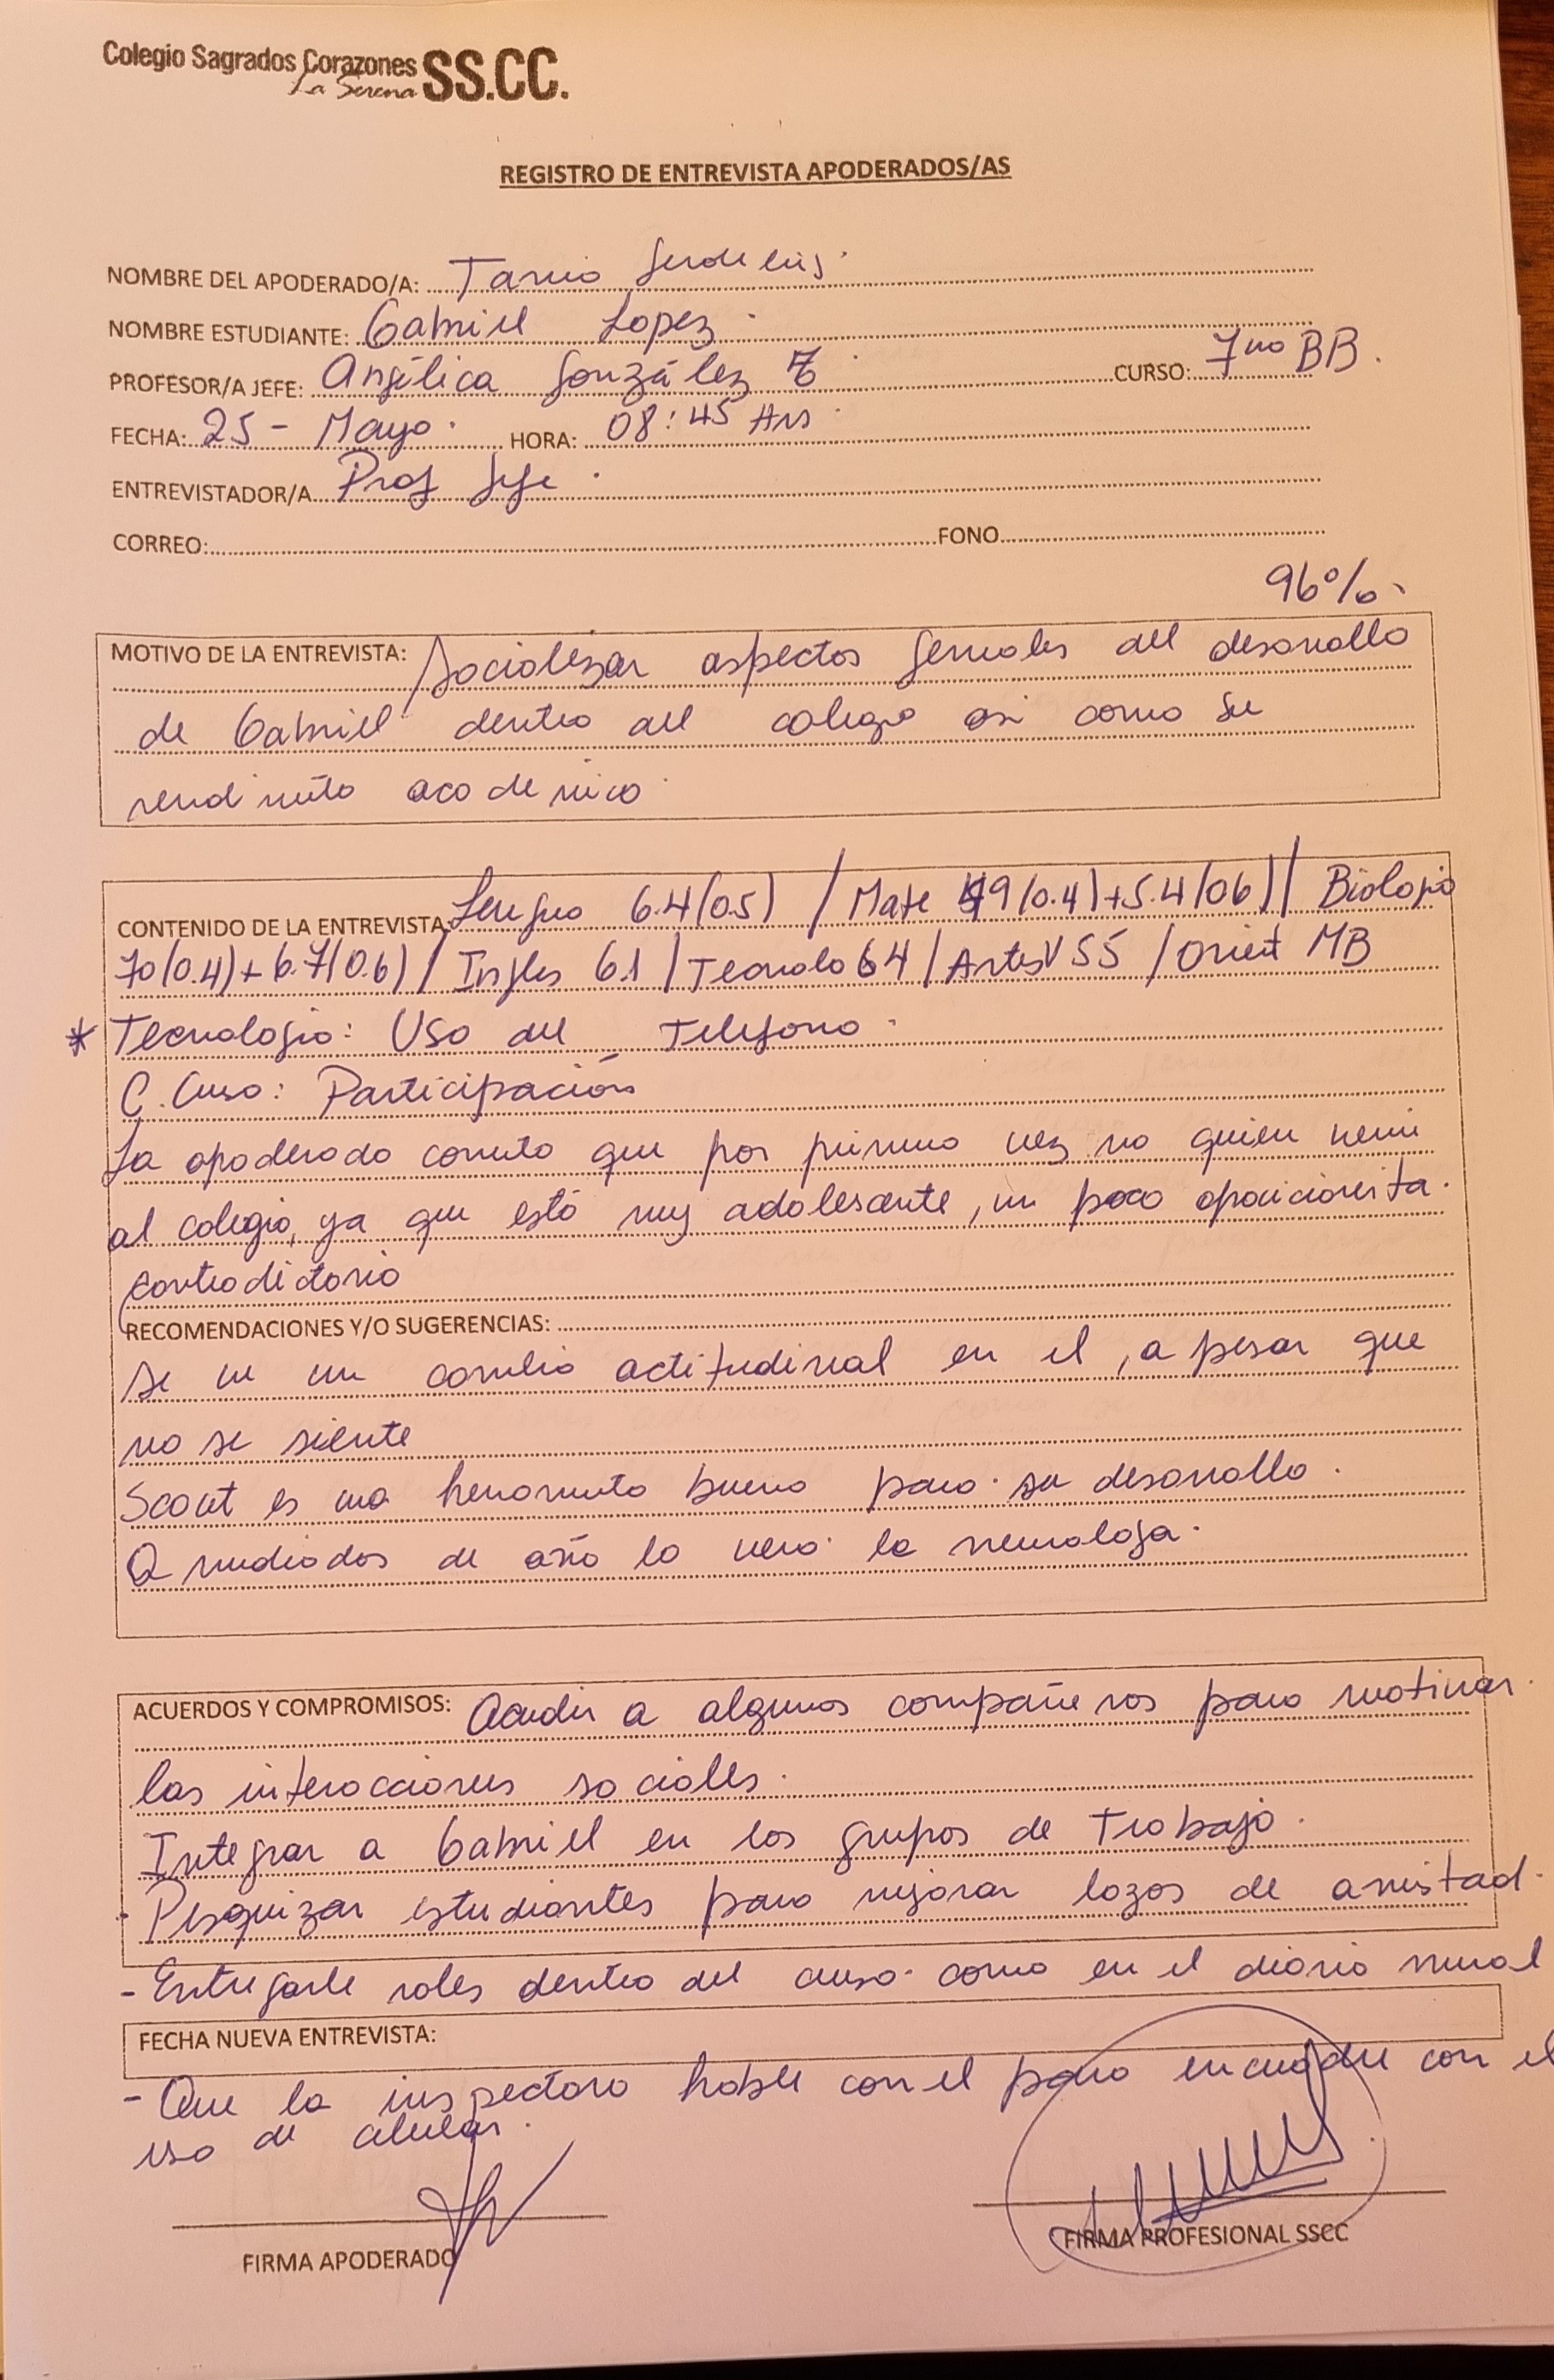 Colegio Sagrados Corazones SS.CC.
La Serena
REGISTRO DE ENTREVISTA APODERADOS/AS
NOMBRE DEL APODERADO/A: Tania
NOMBRE ESTUDIANTE: Gabriel Lopez
PROFESOR/A JEFE: Angélica González CURSO: 7mo BB.
FECHA: 25 - Mayo. HORA: 08:45 Hrs
ENTREVISTADOR/A Prof Jefe
CORREO: FONO
96%
MOTIVO DE LA ENTREVISTA: Socializar aspectos generales del desarrollo
de Gabriel dentro del colegio asi como su
rendimiento academico
CONTENIDO DE LA ENTREVISTA: Lengua 6.4(0.5) / Mate 49(0.4)+5.4(06) / Biologia
70(0.4)+6.7(0.6) / Ingles 6.1 / Tecnolo 64 / Artes V 55 / Orient MB
* Tecnologia: Uso del Telefono.
C. Curso: Participación
La apoderada comenta que por primera vez no quiere venir
al colegio, ya que está muy adolescente, un poco oposicionista.
contradictorio
RECOMENDACIONES Y/O SUGERENCIAS:
Se ve un cambio actitudinal en el, a pesar que
no se siente
Scout es una herramienta buena para su desarrollo.
A mediados de año lo verá la neurologa.
ACUERDOS Y COMPROMISOS: Acudir a algunos compañeros para motivar
las interacciones sociales.
Integrar a Gabriel en los grupos de Trabajo.
- Pesquizar estudiantes para mejorar lazos de amistad.
- Entregarle roles dentro del curso como en el diario mural
FECHA NUEVA ENTREVISTA:
- Que la inspectora hable con el para encuadre con el
uso de celular.
FIRMA APODERADO FIRMA PROFESIONAL SSCC